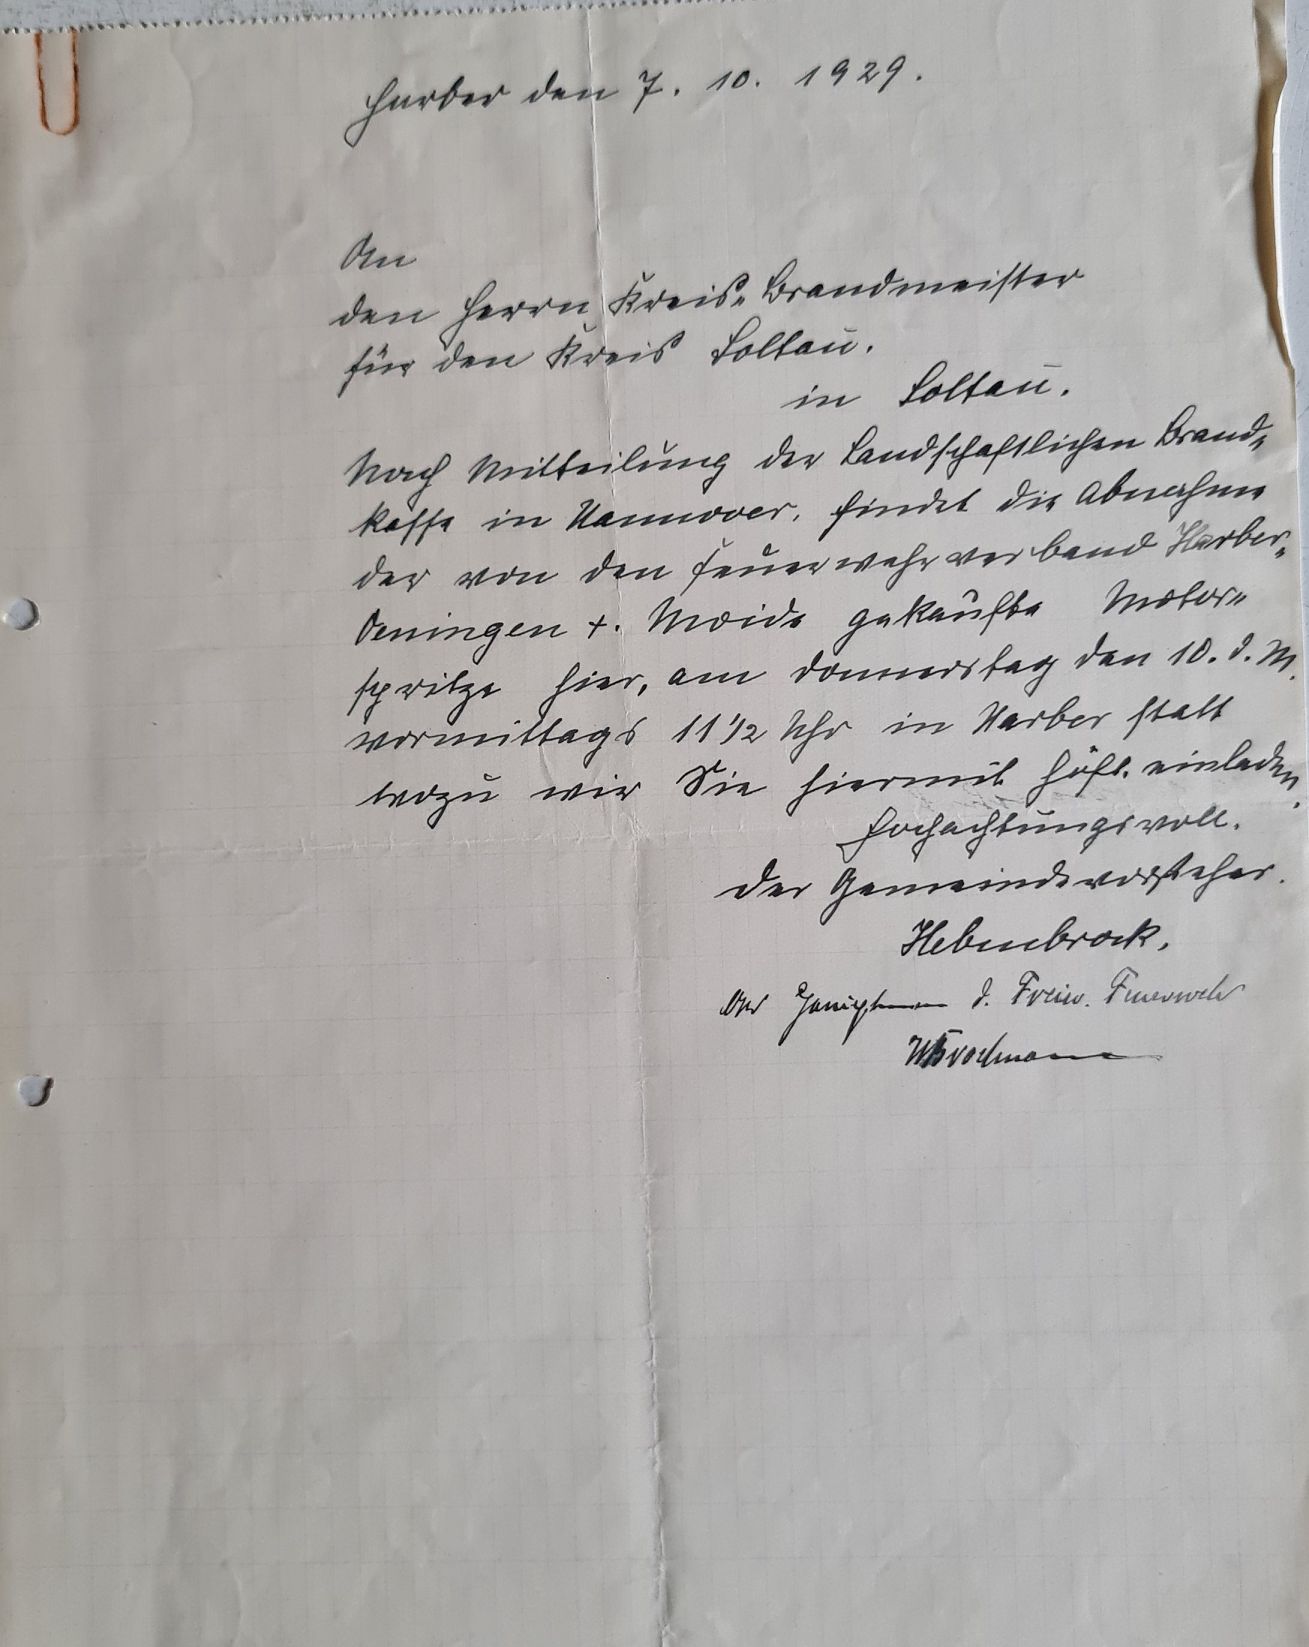 Harber den 7. 10. 1929.
An
den Herrn Kreis-Brandmeister
für den Kreis Soltau.
in Soltau.
Nach Mitteilung der Landschaftlichen Brand-
kasse in Hannover, findet die Abnahme
der von den Feuerwehrverband Harber-
Oeningen +. Moide gekaufte Motor-
spritze hier, am Donnerstag den 10. d. M.
vormittags 11 1/2 Uhr in Harber statt
wozu wir Sie hiermit höfl. einladen.
Hochachtungsvoll.
Der Gemeindevorsteher.
Hebenbrock.
Der Hauptmann d. Freiw. Feuerwehr
W Brockmann